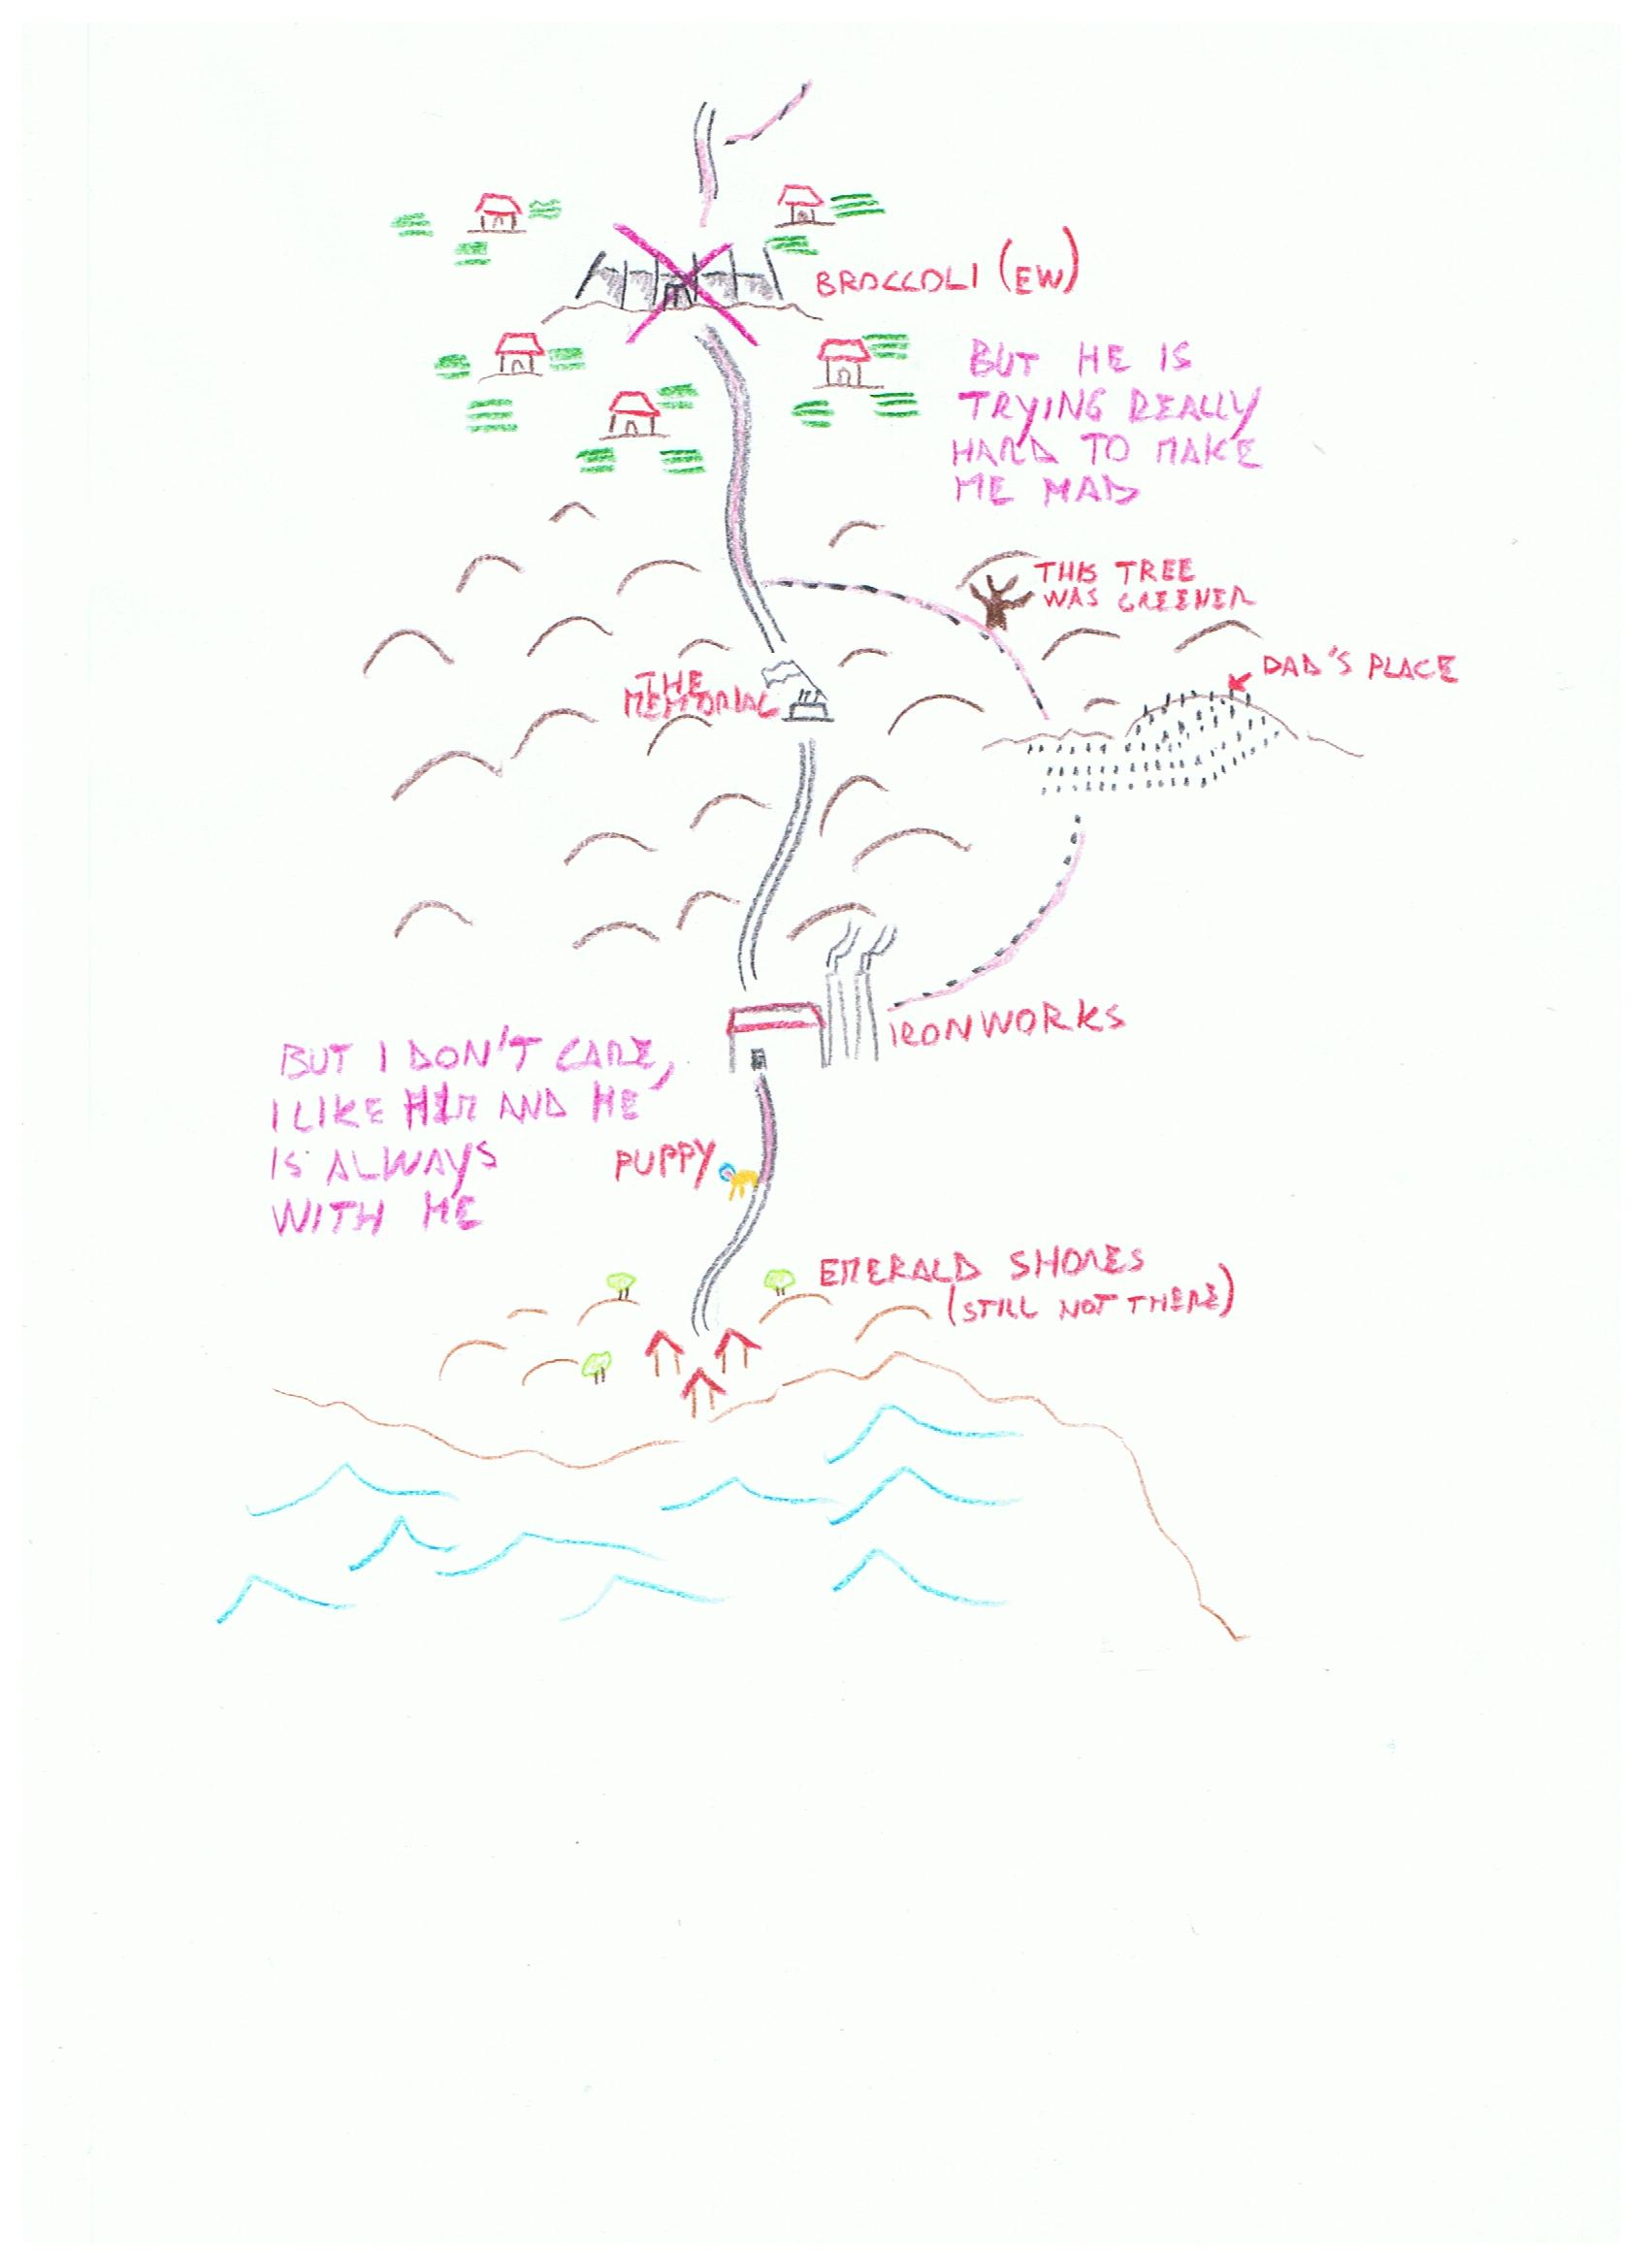 BROCCOLI (EW)
BUT HE IS
TRYING REALLY
HARD TO MAKE
ME MAD
THIS TREE
WAS GREENER
DAD'S PLACE
THE
MEMORIAL
IRONWORKS
BUT I DON'T CARE,
I LIKE HIM AND HE
IS ALWAYS
WITH ME
PUPPY
EMERALD SHORES
(STILL NOT THERE)